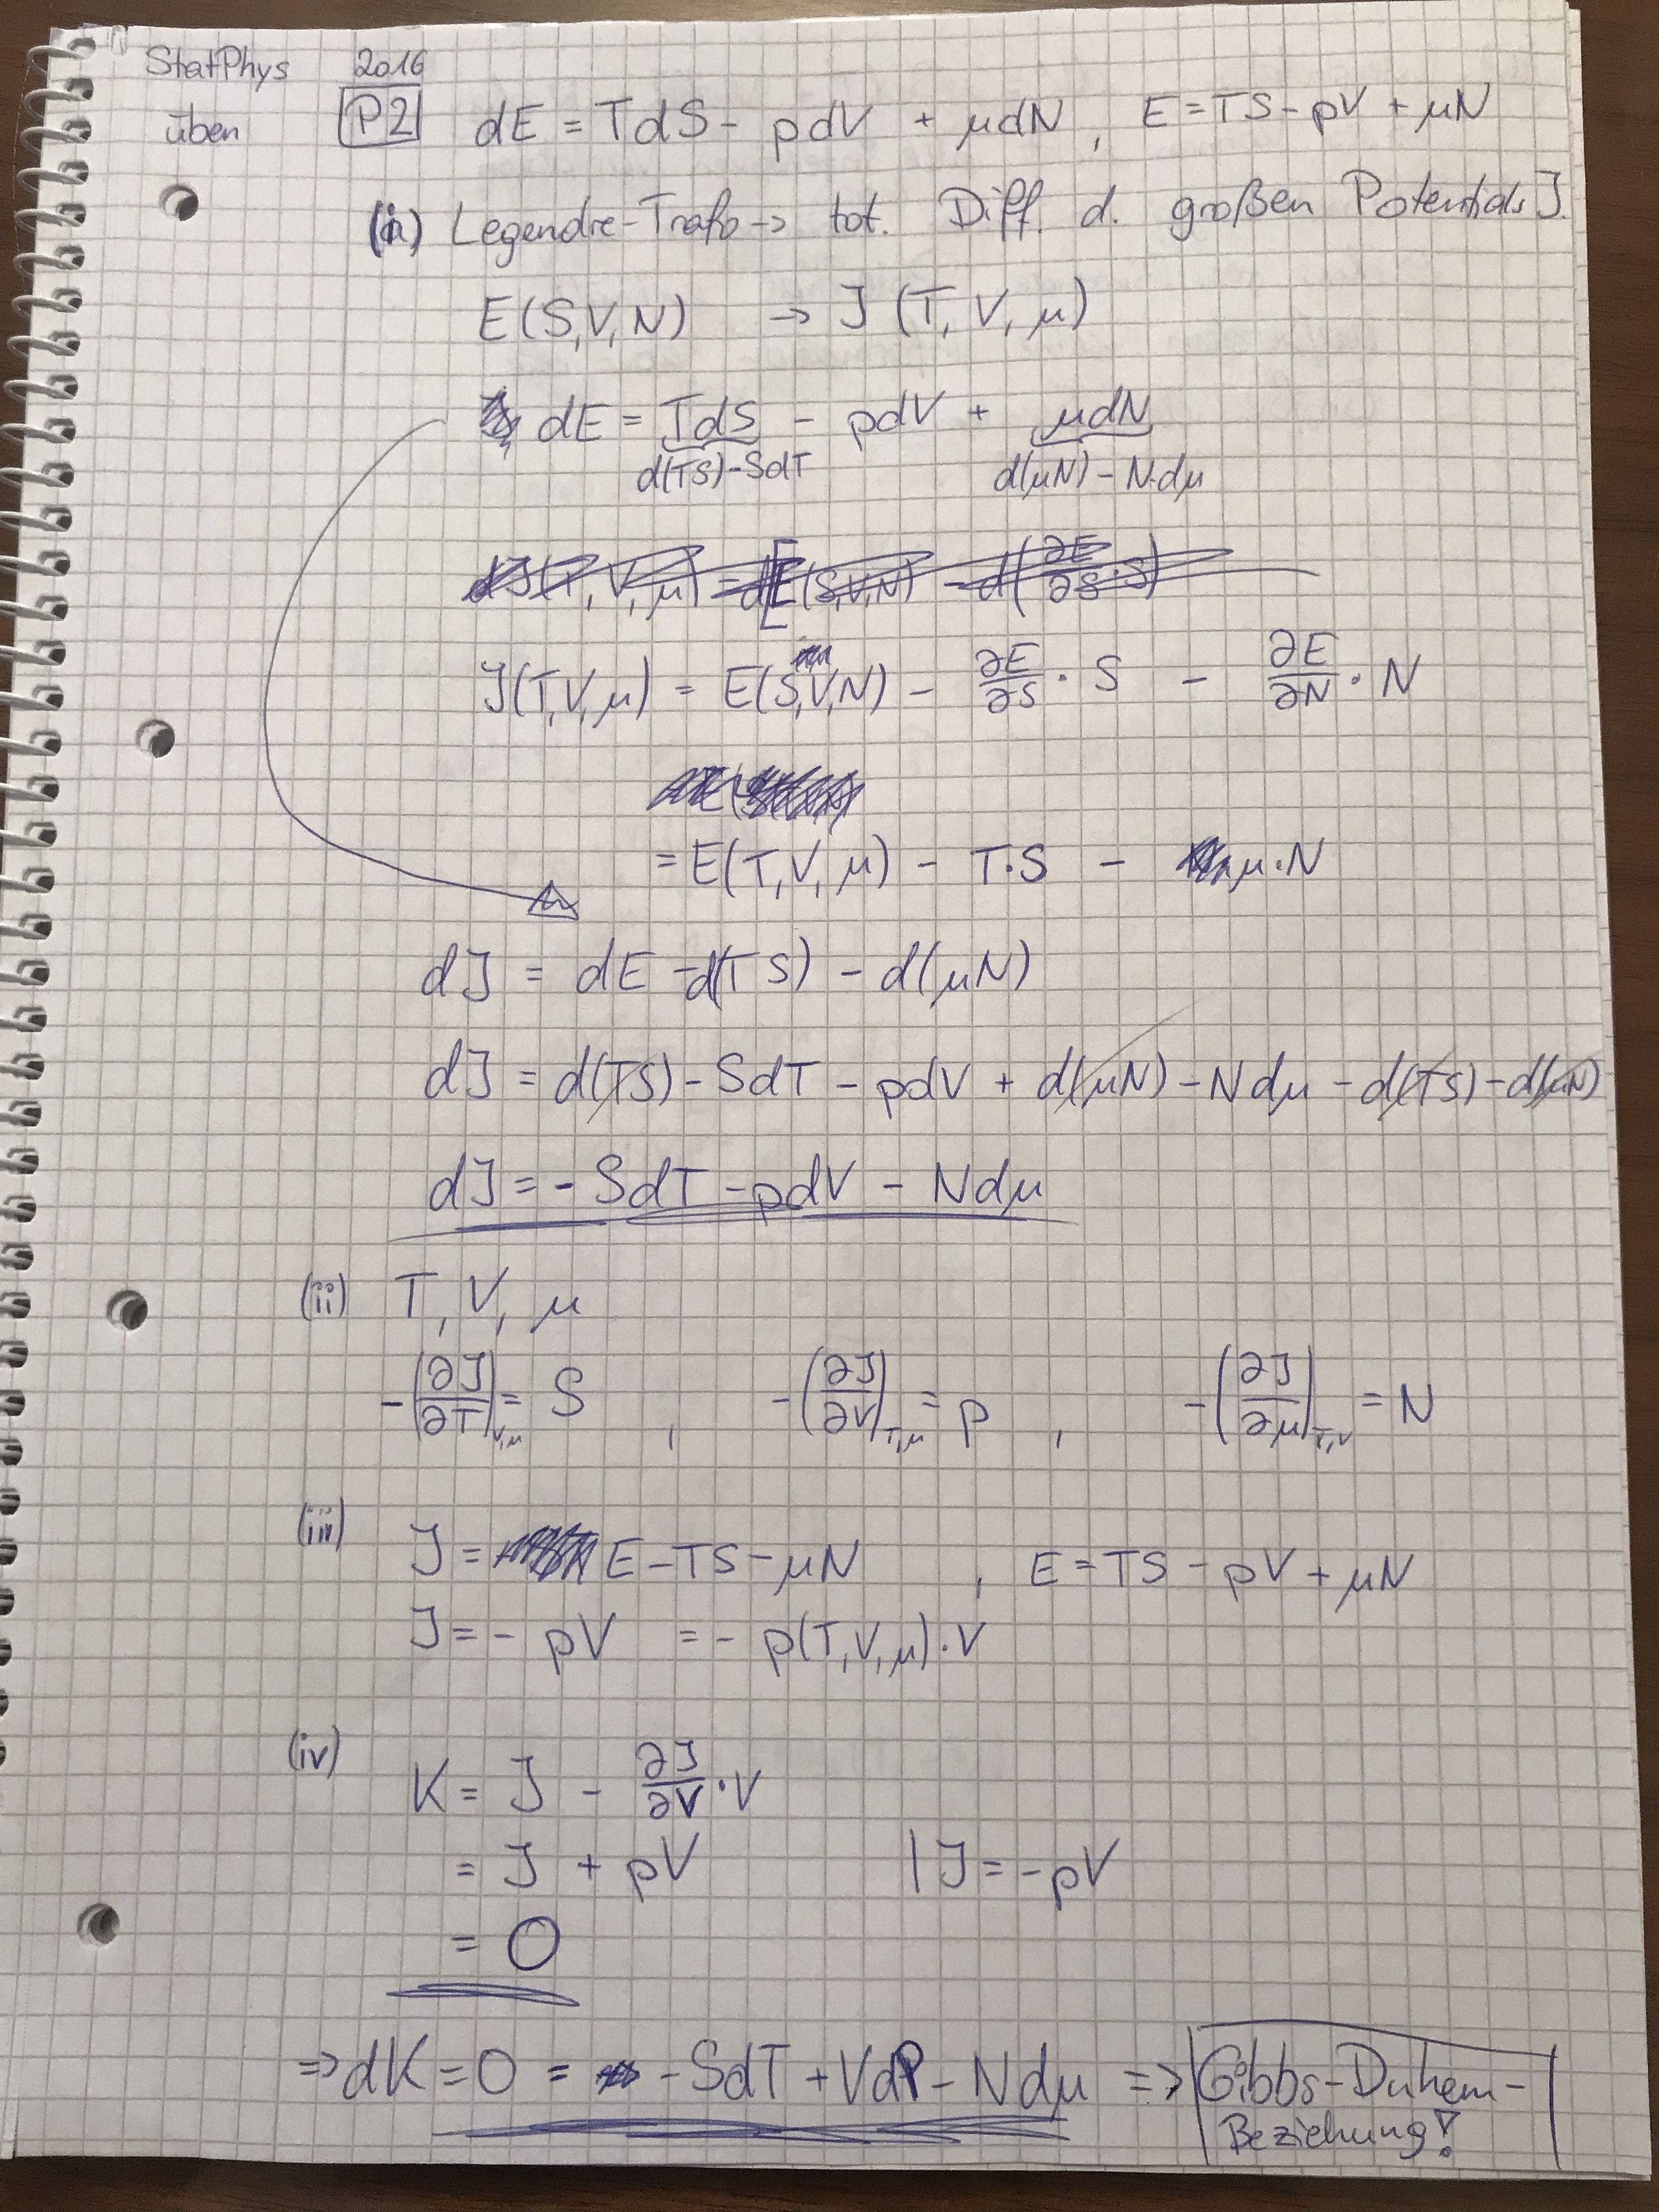 StatPhys 2016
üben P2 dE = TdS - pdV + μdN , E = TS - pV + μN
(i) Legendre-Trafo → tot. Diff. d. großen Potentials J.
E(S,V,N) → J(T, V, μ)
dE = TdS - pdV + μdN
d(TS)-SdT d(μN) - N·dμ
dJ(T, V, μ) = d[E(S,V,N) - d(∂E/∂S · S)
J(T,V,μ) = E(S,V,N) - ∂E/∂S · S - ∂E/∂N · N
= E(T, V, μ) - T·S - μ·N
dJ = dE - d(TS) - d(μN)
dJ = d(TS) - SdT - pdV + d(μN) - Ndμ - d(TS) - d(μN)
dJ = - SdT - pdV - Ndμ
(ii) T, V, μ
-(∂J/∂T)_{V,μ} = S , -(∂J/∂V)_{T,μ} = p , -(∂J/∂μ)_{T,V} = N
(iii) J = E - TS - μN , E = TS - pV + μN
J = - pV = - p(T,V,μ)·V
(iv) K = J - ∂J/∂V · V
= J + pV | J = -pV
= 0
⇒ dK = 0 = - SdT + VdP - Ndμ ⇒ Gibbs-Duhem-
Beziehung!